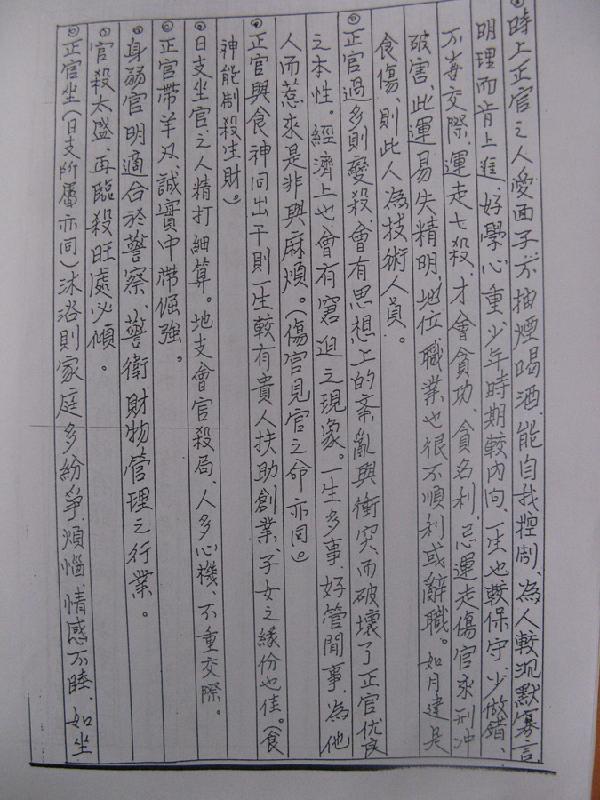 時上正官之人愛面子亦抽煙喝酒、能自我控制、為人較沉默寡言
明理而肯上進、好學心重少年時期較內向、一生也較保守、少做錯、
不善交際、運走七殺、才會貪功、貪名利、忌運走傷官來刑沖
破害、此運易失精明、地位職業也很不順利或辭職。如月建是
食傷、則此人為技術人員。
正官過多則變殺會有思想上的紊亂與衝突、而破壞了正官優良
之本性。經濟上也會有窘迫之現象。一生多事、好管閒事、為他
人而惹來是非與麻煩。(傷官見官之命亦同)
正官與食神同出干則一生較有貴人扶助創業、子女之緣份也佳。(食
神能制殺生財)
日支坐官之人精打細算。地支會官殺局、人多心機、不重交際。
正官帶羊刃、誠實中帶倔強。
身弱官明適合於警察、警衛財物管理之行業。
官殺太盛、再臨殺旺處必傾。
正官坐(日支所屬亦同)沐浴則家庭多紛爭、煩惱、情感不睦、如坐